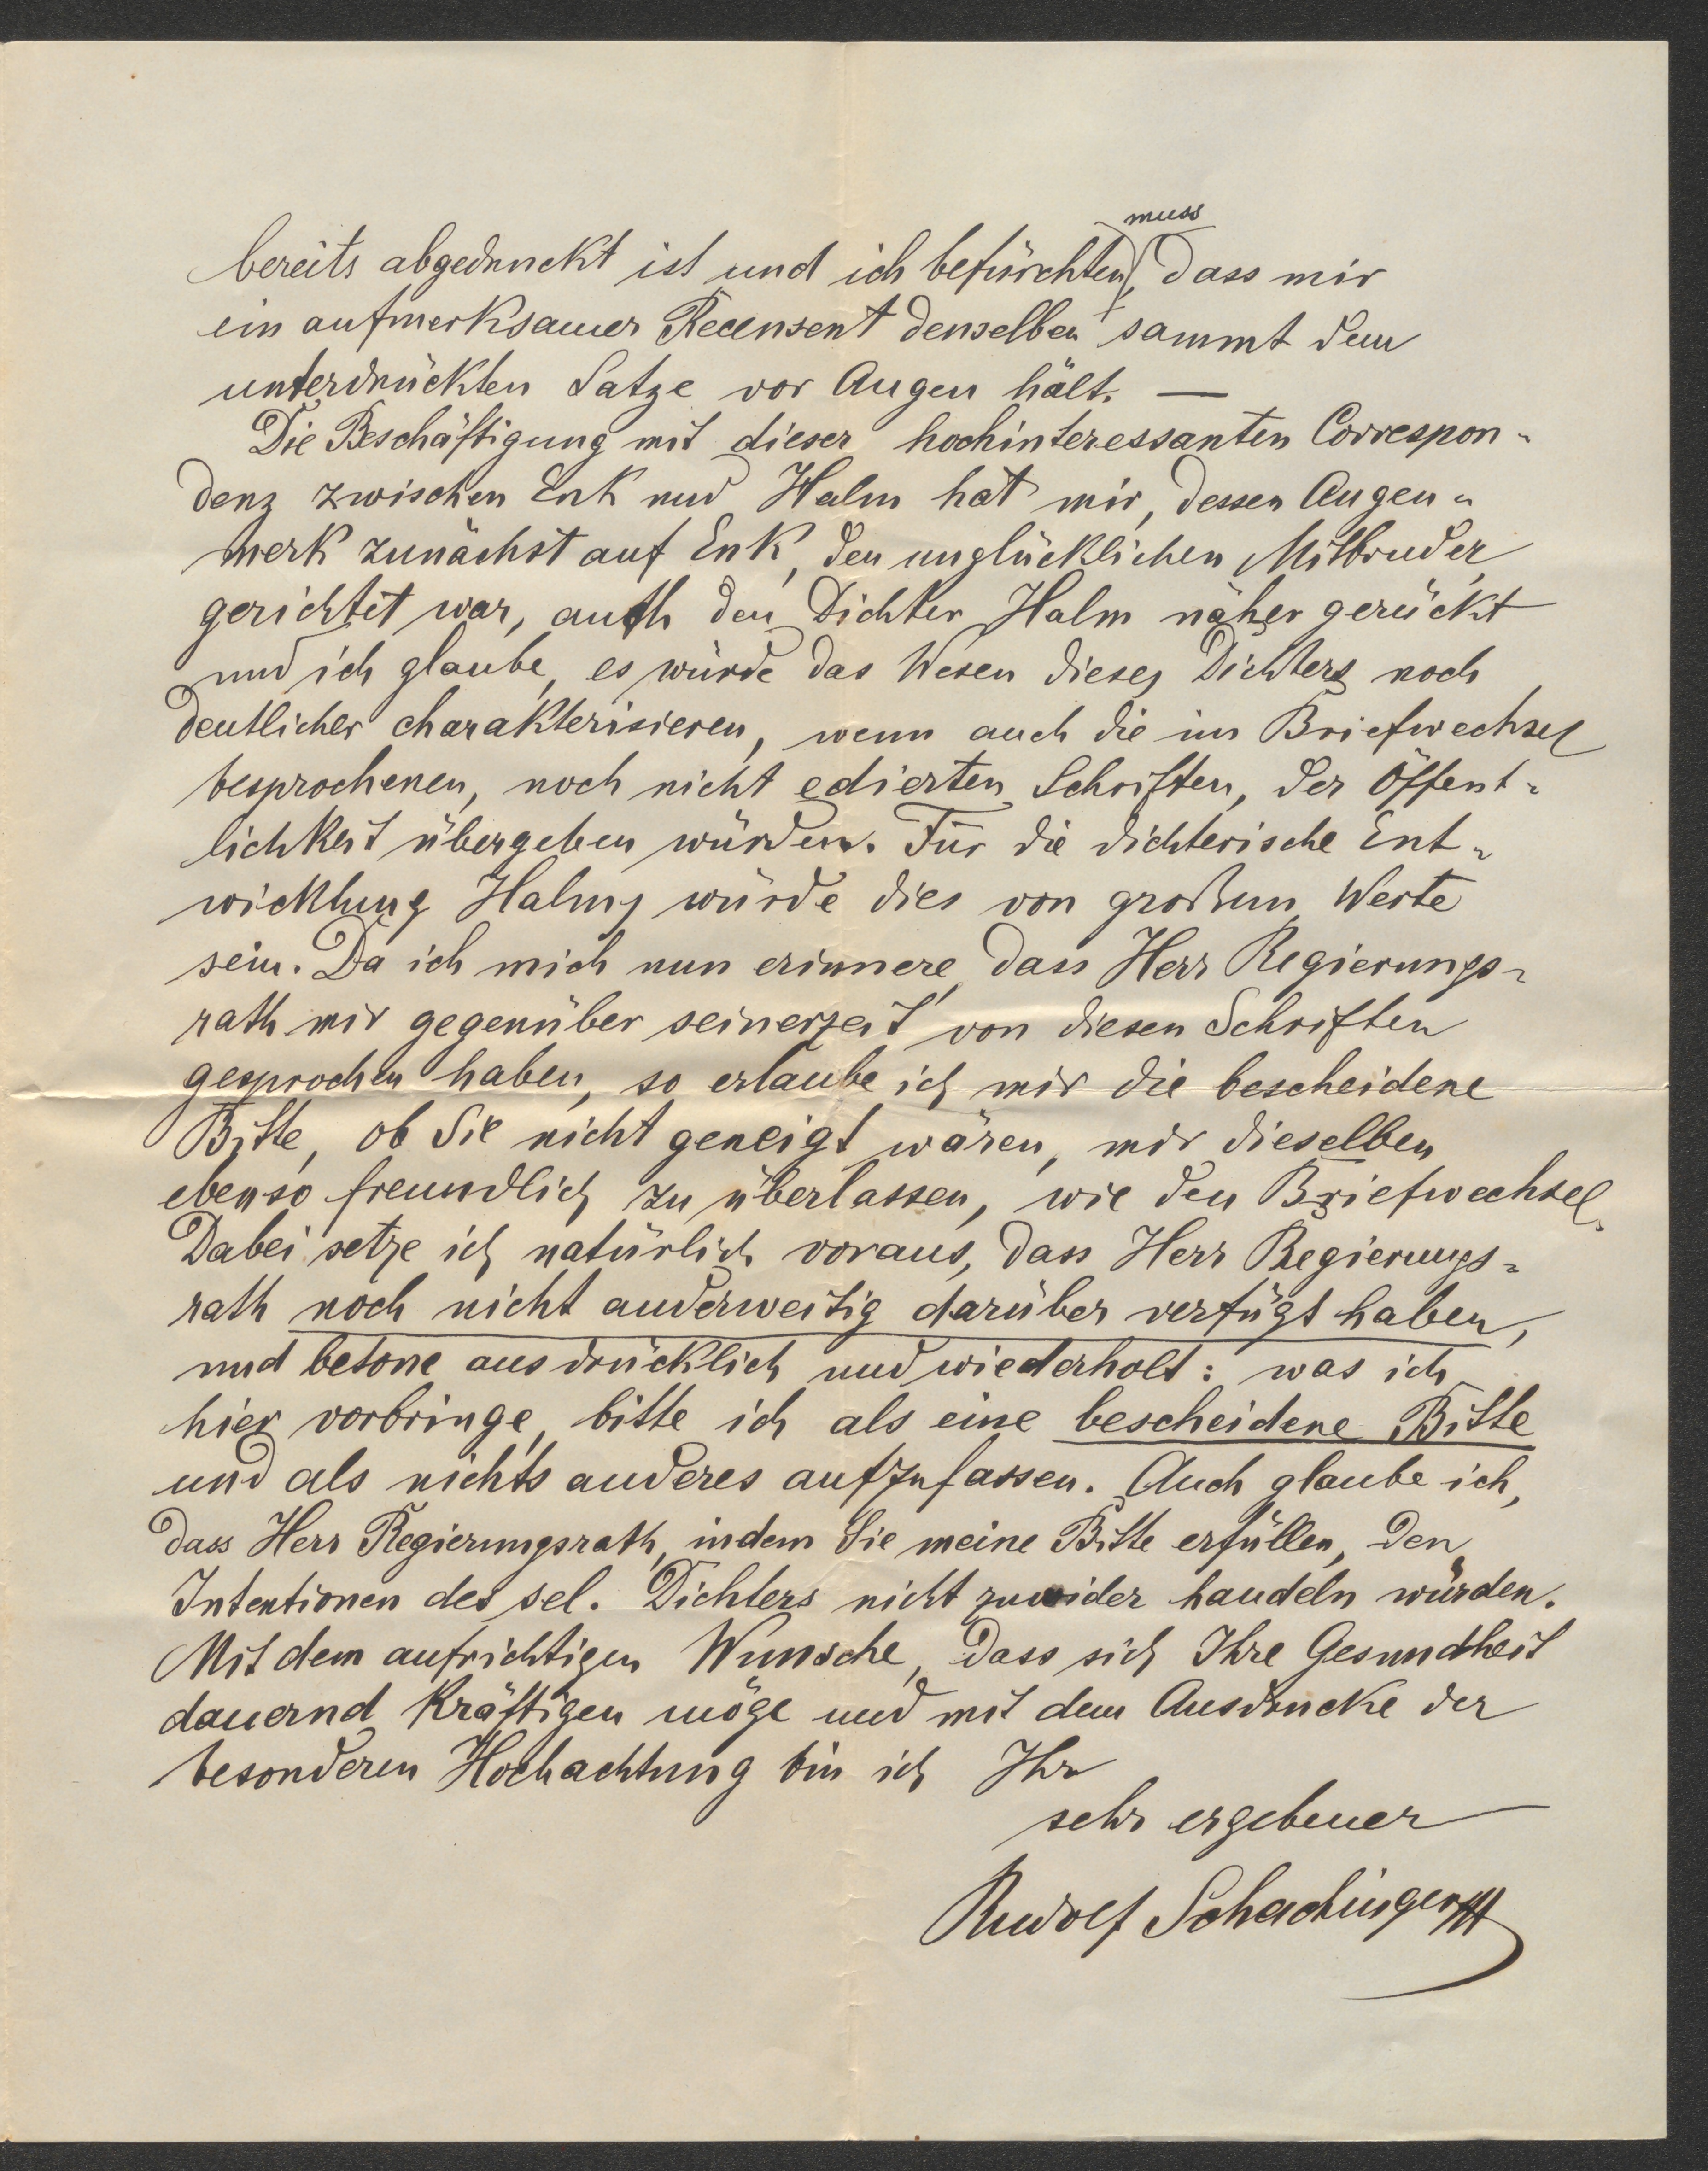 muss
bereits abgedruckt ist und ich befürchten, dass mir
ein aufmerksamer Recensent denselben sammt dem
unterdrückten Satze vor Augen hält. —
Die Beschäftigung mit dieser hochinteressanten Correspon-
denz zwischen Enk und Halm hat mir, dessen Augen-
merk zunächst auf Enk, den unglücklichen Mitbruder
gerichtet war, auch den Dichter Halm näher gerückt
und ich glaube, es würde das Wesen dieses Dichters noch
deutlicher charakterisieren, wenn auch die im Briefwechsel
besprochenen, noch nicht edierten Schriften, der Öffent-
lichkeit übergeben würden. Für die dichterische Ent-
wicklung Halms würde dies von großem Werte
sein. Da ich mich nun erinnere, dass Herr Regierungs-
rath mir gegenüber seinerzeit von diesen Schriften
gesprochen haben, so erlaube ich mir die bescheidene
Bitte, ob Sie nicht geneigt wären, mir dieselben
ebenso freundlich zu überlassen, wie den Briefwechsel.
Dabei setze ich natürlich voraus, dass Herr Regierungs-
rath noch nicht anderweitig darüber verfügt haben,
und betone ausdrücklich und wiederholt: was ich
hier vorbringe, bitte ich als eine bescheidene Bitte
und als nichts anderes aufzufassen. Auch glaube ich,
dass Herr Regierungsrath, indem Sie meine Bitte erfüllen, den
Intentionen des sel. Dichters nicht zuwider handeln würden.
Mit dem aufrichtigen Wunsche, dass sich Ihre Gesundheit
dauernd kräftigen möge und mit dem Ausdrucke der
besonderen Hochachtung bin ich Ihr
sehr ergebener
Rudolf Schachinger